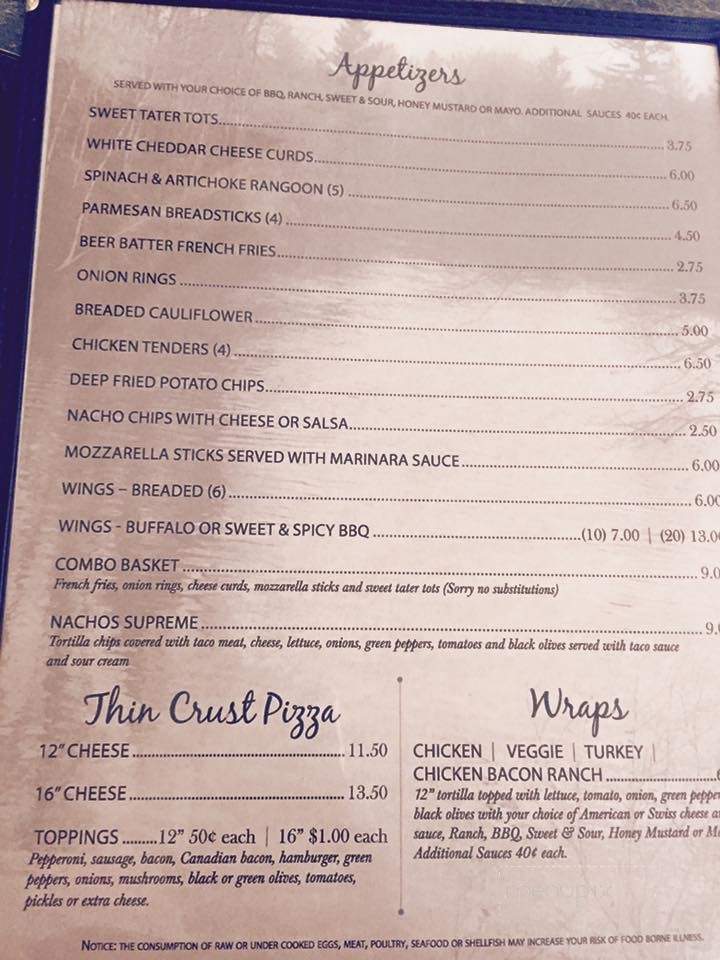 Appetizers
SERVED WITH YOUR CHOICE OF BBQ, RANCH, SWEET & SOUR, HONEY MUSTARD OR MAYO. ADDITIONAL SAUCES 40¢ EACH.
SWEET TATER TOTS..........3.75
WHITE CHEDDAR CHEESE CURDS..........6.00
SPINACH & ARTICHOKE RANGOON (5)..........6.50
PARMESAN BREADSTICKS (4)..........4.50
BEER BATTER FRENCH FRIES..........2.75
ONION RINGS..........3.75
BREADED CAULIFLOWER..........5.00
CHICKEN TENDERS (4)..........6.50
DEEP FRIED POTATO CHIPS..........2.75
NACHO CHIPS WITH CHEESE OR SALSA..........2.50
MOZZARELLA STICKS SERVED WITH MARINARA SAUCE..........6.00
WINGS – BREADED (6)..........6.00
WINGS - BUFFALO OR SWEET & SPICY BBQ..........(10) 7.00 | (20) 13.0
COMBO BASKET..........9.0
French fries, onion rings, cheese curds, mozzarella sticks and sweet tater tots (Sorry no substitutions)
NACHOS SUPREME..........9.
Tortilla chips covered with taco meat, cheese, lettuce, onions, green peppers, tomatoes and black olives served with taco sauce
and sour cream
Thin Crust Pizza
12" CHEESE..........11.50
16" CHEESE..........13.50
TOPPINGS.........12" 50¢ each | 16" $1.00 each
Pepperoni, sausage, bacon, Canadian bacon, hamburger, green
peppers, onions, mushrooms, black or green olives, tomatoes,
pickles or extra cheese.
Wraps
CHICKEN | VEGGIE | TURKEY |
CHICKEN BACON RANCH..........
12" tortilla topped with lettuce, tomato, onion, green pepper
black olives with your choice of American or Swiss cheese
sauce, Ranch, BBQ, Sweet & Sour, Honey Mustard or
Additional Sauces 40¢ each.
NOTICE: THE CONSUMPTION OF RAW OR UNDER COOKED EGGS, MEAT, POULTRY, SEAFOOD OR SHELLFISH MAY INCREASE YOUR RISK OF FOOD BORNE ILLNESS.